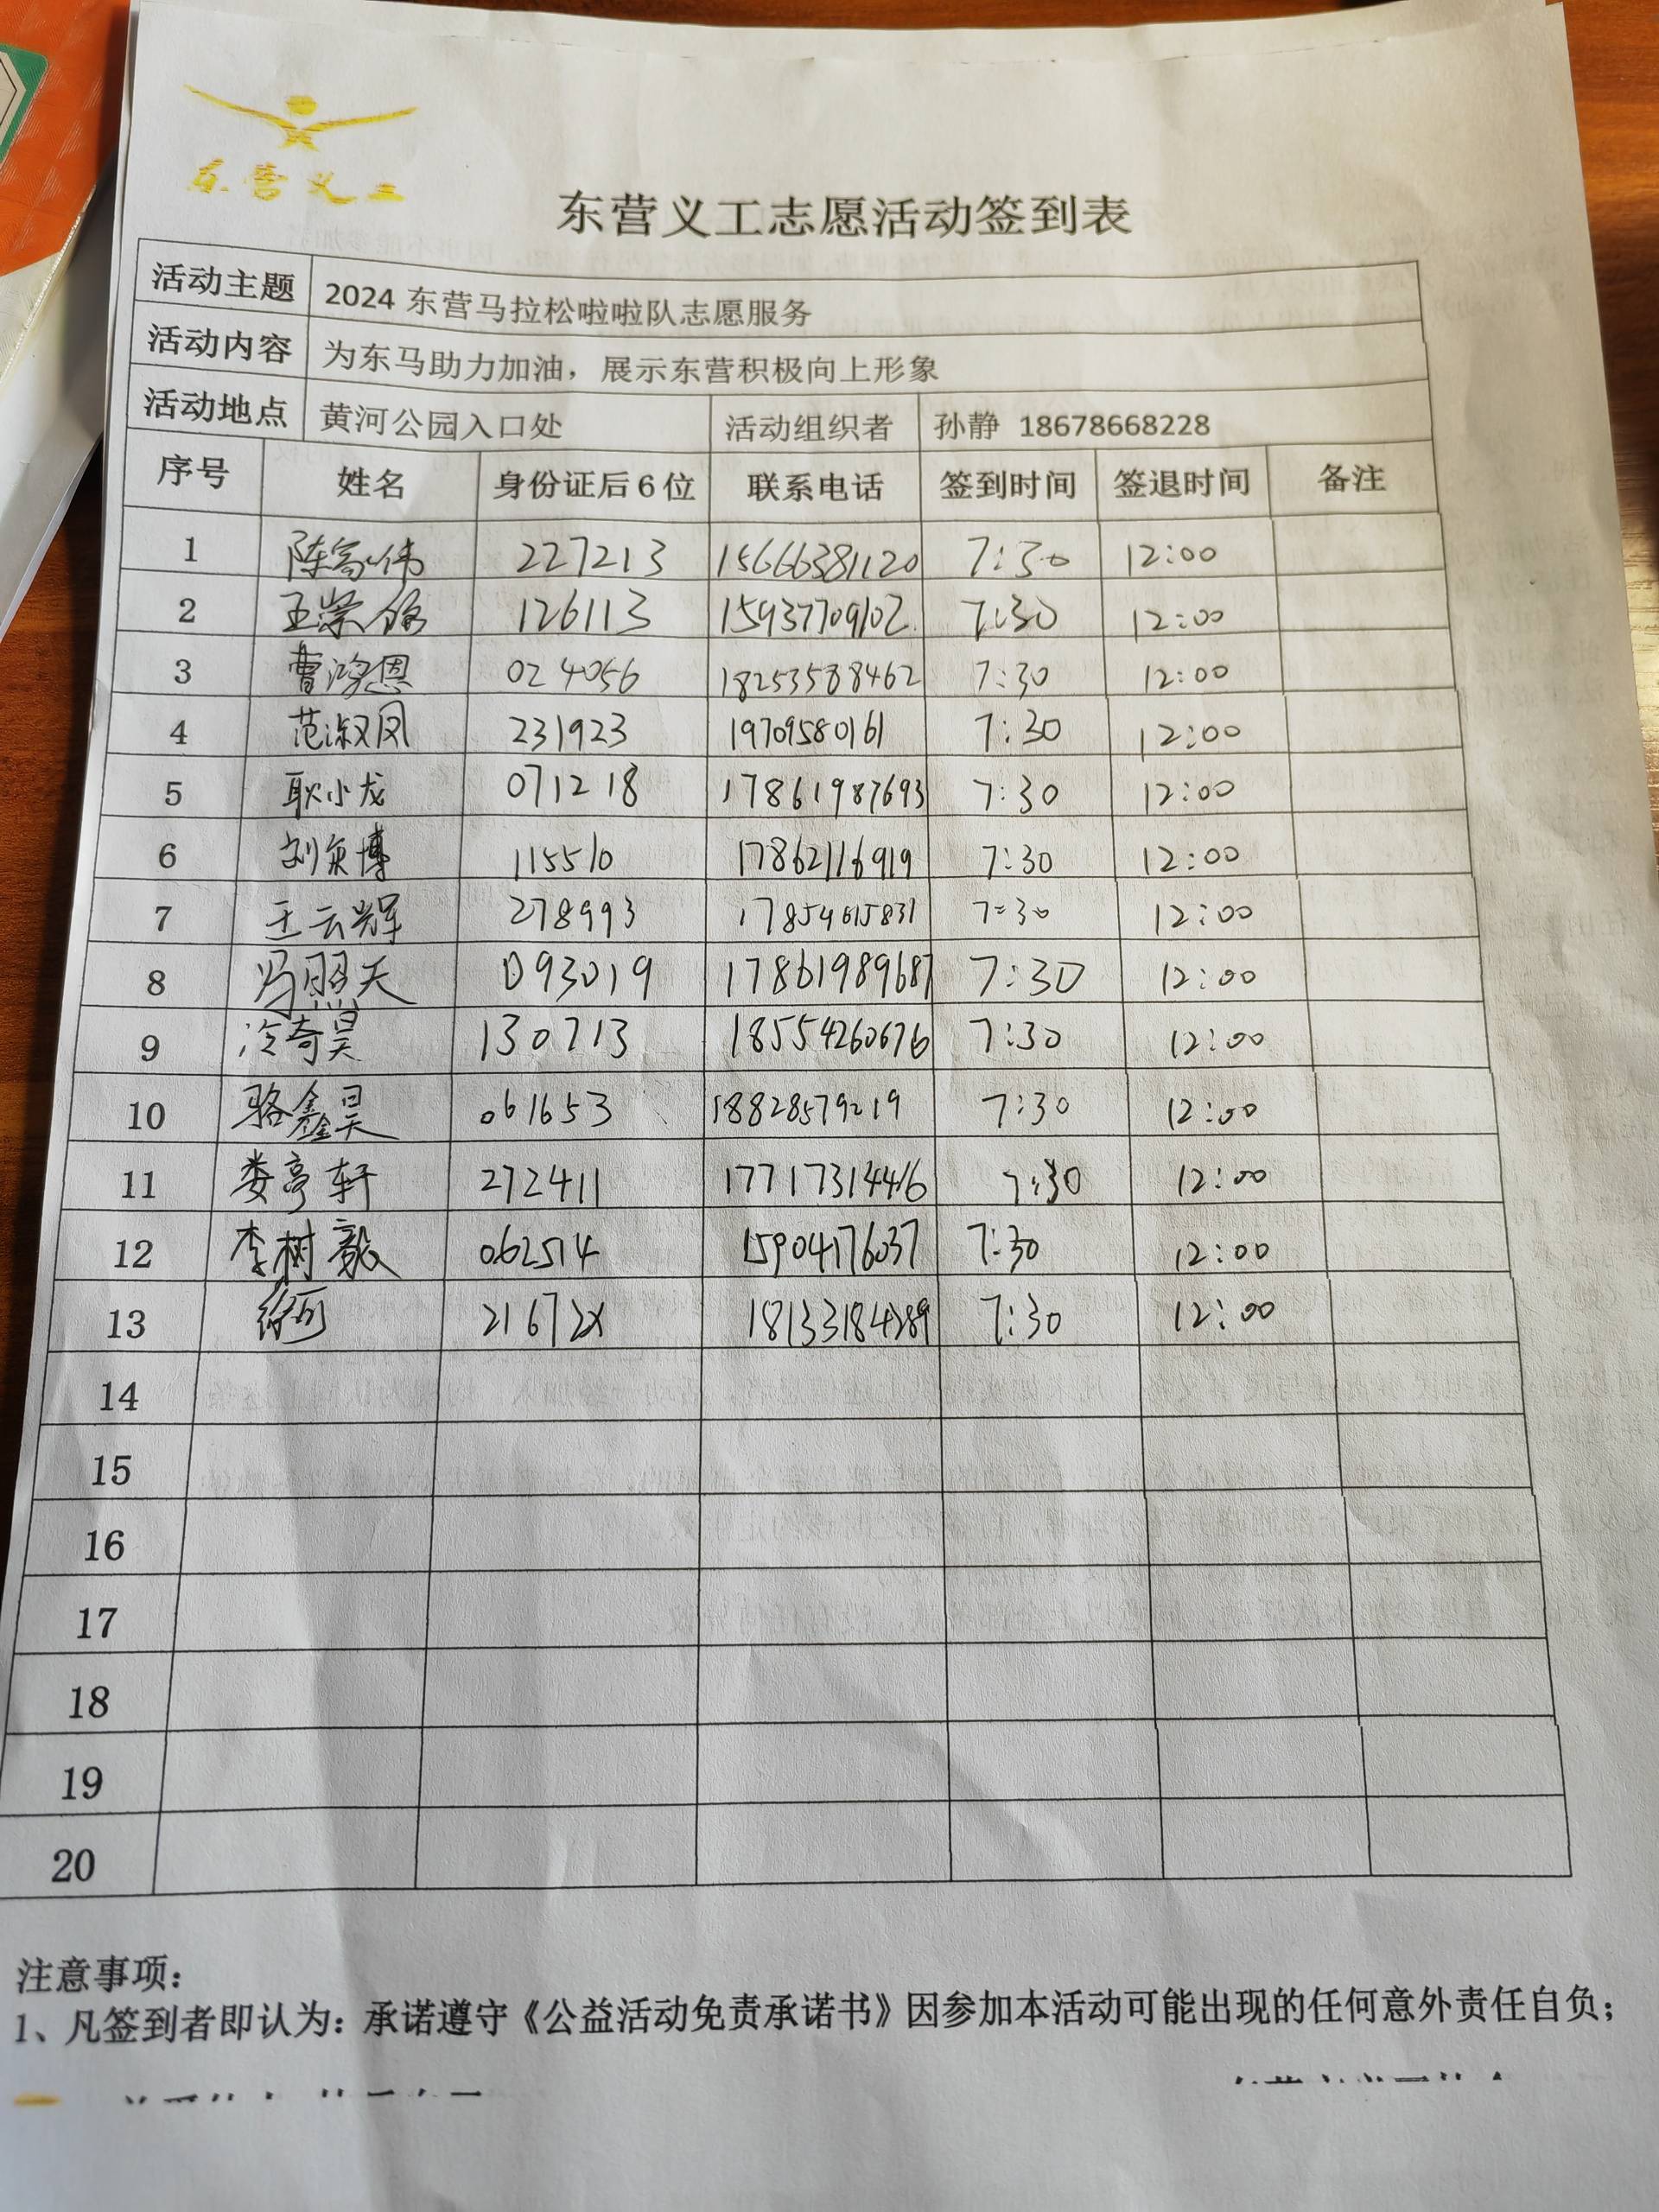 东营义工
东营义工志愿活动签到表
活动主题 2024 东营马拉松啦啦队志愿服务
活动内容 为东马助力加油，展示东营积极向上形象
活动地点 黄河公园入口处 活动组织者 孙静 18678668228
序号 姓名 身份证后6位 联系电话 签到时间 签退时间 备注
1 陈富伟 227213 15666381120 7:30 12:00
2 王崇 126113 15937709102 7:30 12:00
3 曹鸿恩 024056 18253588462 7:30 12:00
4 范淑凤 231923 19709580161 7:30 12:00
5 耿小龙 071218 17861987693 7:30 12:00
6 刘东博 115510 17862116919 7:30 12:00
7 王云辉 278993 17854615831 7:30 12:00
8 冯照天 093019 17861989687 7:30 12:00
9 冷奇昊 130713 18554260676 7:30 12:00
10 骆鑫昊 061653 18828579219 7:30 12:00
11 娄亭轩 272411 17717314416 7:30 12:00
12 李树毅 062514 15904176037 7:30 12:00
13 徐可 21672X 18133184289 7:30 12:00
14
15
16
17
18
19
20
注意事项：
1、凡签到者即认为：承诺遵守《公益活动免责承诺书》因参加本活动可能出现的任何意外责任自负；